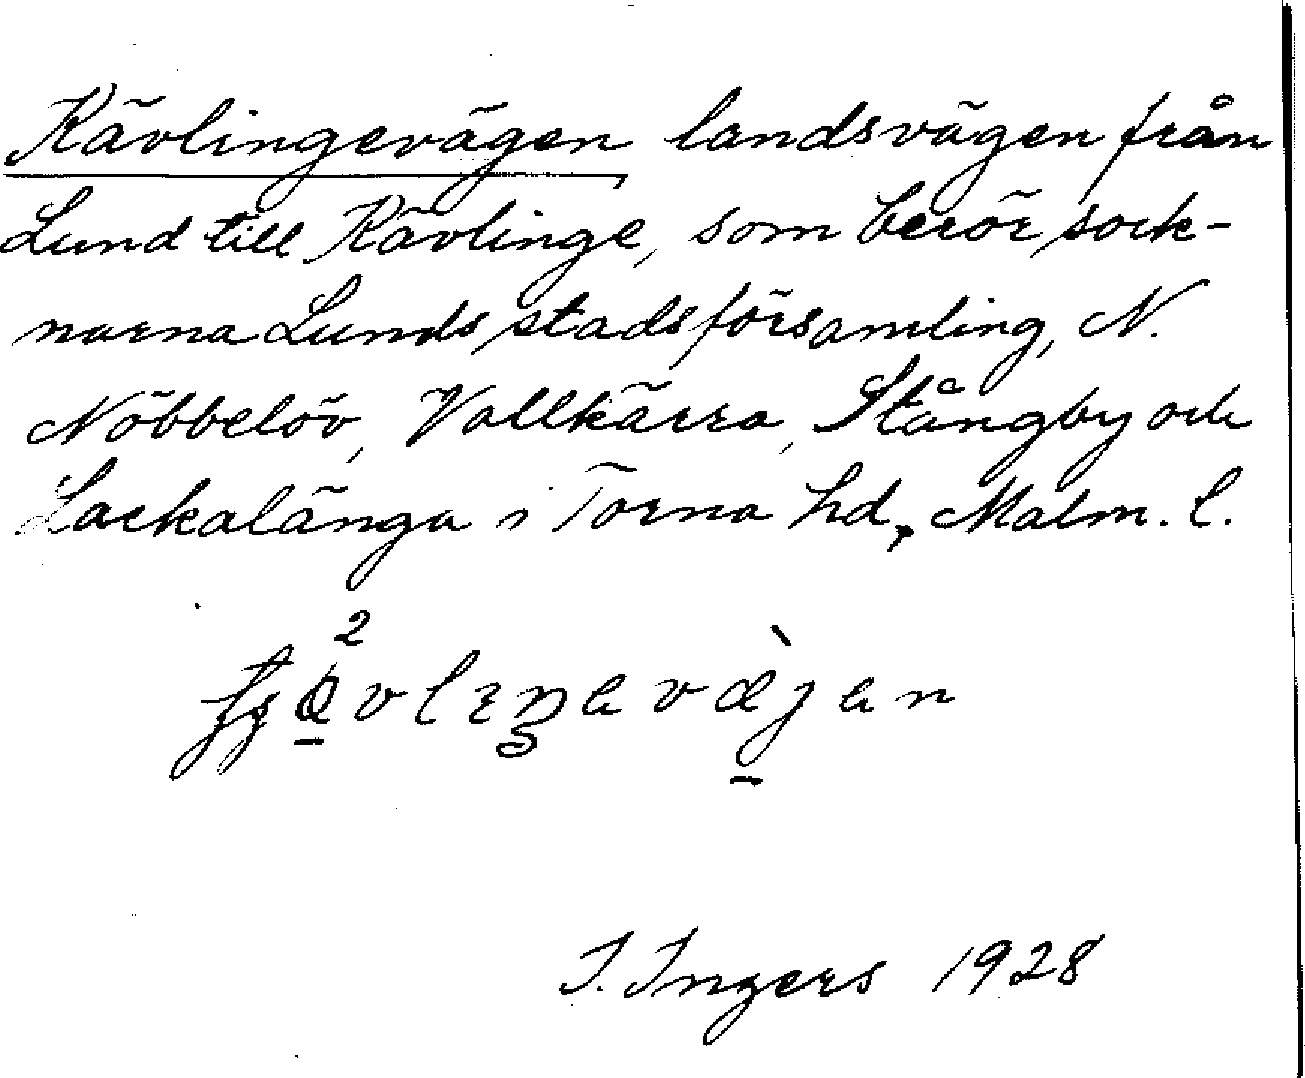 Kävlingevägen, landsvägen från
Lund till Kävlinge, som berör sock-
narna Lunds stadsförsamling, N.
Nöbbelöv, Vallkärra, Stångby och
Lackalänga i Torna hd, Malm. l.
I. Ingers 1928